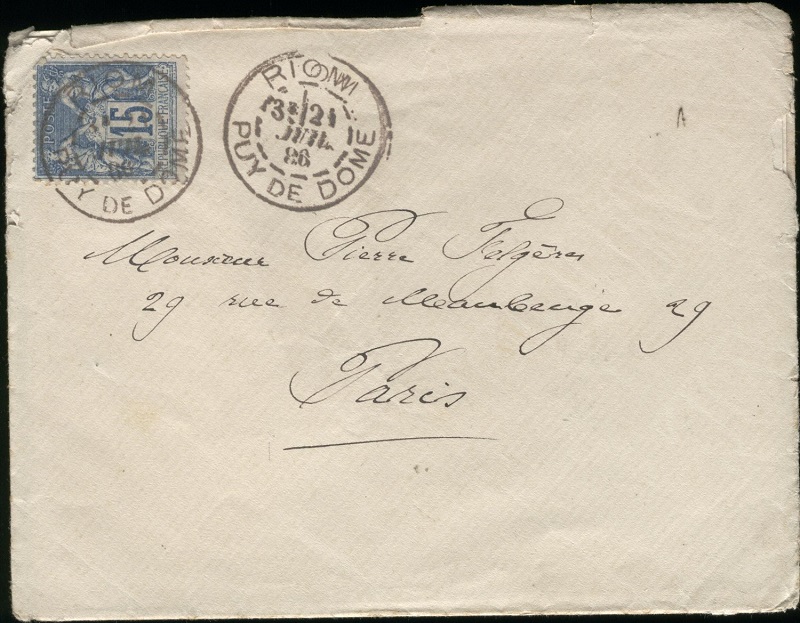 POSTE
15
REPUBLIQUE FRANCAISE
PUY DE DOME
RIOM
3E 21
JUIL
86
PUY DE DOME
Monsieur Pierre
29 rue de Maubeuge 29
Paris